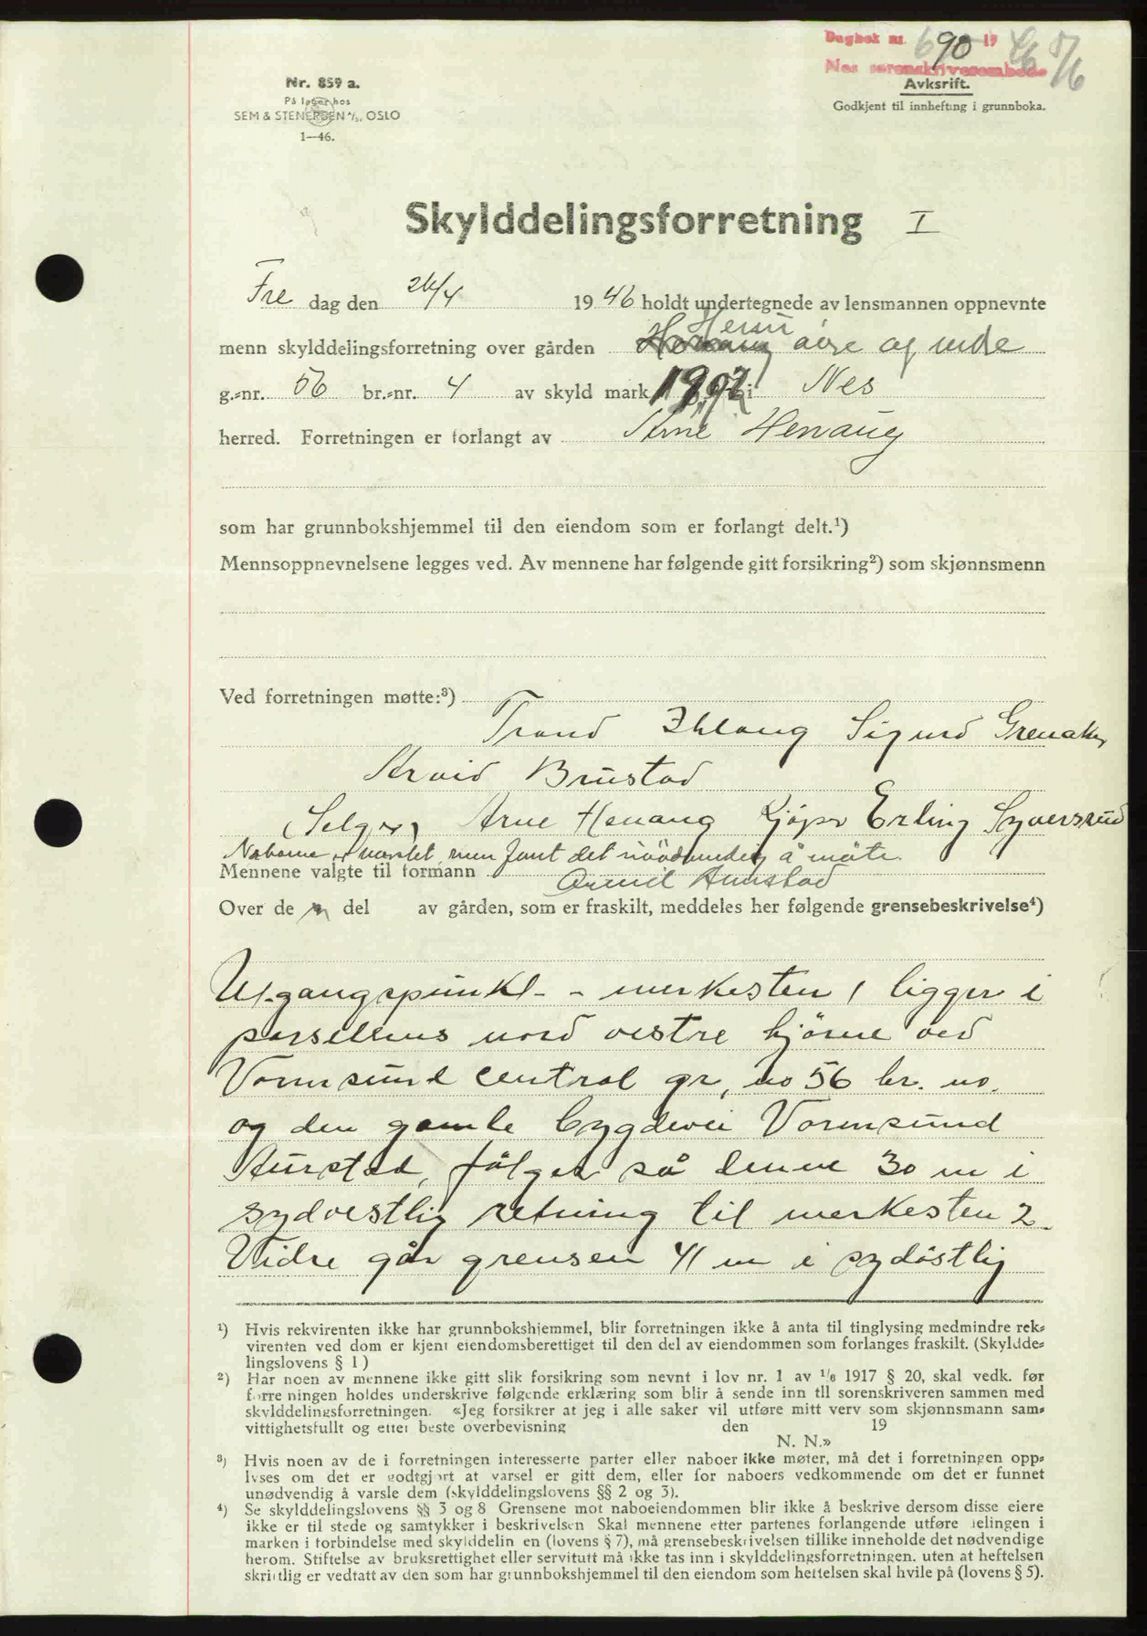 Dagbok nr. 690 19 46 5/6
Nes sorenskriverembede
Nr. 859 a.
På lager hos
SEM & STENERSEN A/S, OSLO
1—46.
Avskrift.
Godkjent til innhefting i grunnboka.
Skylddelingsforretning I
Fre dag den 26/4 1946 holdt undertegnede av lensmannen oppnevnte
menn skylddelingsforretning over gården øvre og nedre
g.-nr. 56 br.-nr. 4 av skyld mark 1907 i Nes
herred. Forretningen er forlangt av Arne Henaug
som har grunnbokshjemmel til den eiendom som er forlangt delt.¹)
Mennsoppnevnelsene legges ved. Av mennene har følgende gitt forsikring²) som skjønnsmenn
Ved forretningen møtte:³)
Trond Ihlang Sigurd Grenaker
Arvid Brustad
Selger, Arne Henaug Kjøper Erling Syversrud
Naboene er varslet, men fant det unødvendig å møte.
Mennene valgte til formann Arvid Brustad
Over de n del av gården, som er fraskilt, meddeles her følgende grensebeskrivelse⁴)
Utgangspunkt - - merkesten 1 ligger i
parsellens nord vestre hjørne ved
Vormsund central gr. no 56 br. no.
og den gamle bygdevei Vormsund
Aurstad, følger så denne 30 m i
sydvestlig retning til merkesten 2.
Vidre går grensen 41 m i sydøstlig
¹) Hvis rekvirenten ikke har grunnbokshjemmel, blir forretningen ikke å anta til tinglysing medmindre rek-
virenten ved dom er kjent eiendomsberettiget til den del av eiendommen som forlanges fraskilt. (Skyldde-
lingslovens § 1)
²) Har noen av mennene ikke gitt slik forsikring som nevnt i lov nr. 1 av 1/6 1917 § 20, skal vedk. før
forretningen holdes underskrive følgende erklæring som blir å sende inn til sorenskriveren sammen med
skylddelingsforretningen. «Jeg forsikrer at jeg i alle saker vil utføre mitt verv som skjønnsmann sam-
vittighetsfullt og etter beste overbevisning den 19
N. N.»
³) Hvis noen av de i forretningen interesserte parter eller naboer ikke møter, må det i forretningen opp-
lyses om det er godtgjort at varsel er gitt dem, eller for naboers vedkommende om det er funnet
unødvendig å varsle dem (skylddelingslovens §§ 2 og 3).
⁴) Se skylddelingslovens §§ 3 og 8 Grensene mot naboeiendommen blir ikke å beskrive dersom disse eiere
ikke er til stede og samtykker i beskrivelsen Skal mennene etter partenes forlangende utføre delingen i
marken i forbindelse med skylddelingen (lovens § 7), må grensebeskrivelsen tillike inneholde det nødvendige
herom. Stiftelse av bruksrettighet eller servitutt må ikke tas inn i skylddelingsforretningen. uten at heftelsen
skriftlig er vedtatt av den som har grunnbokshjemmel til den eiendom som heftelsen skal hvile på (lovens § 5).